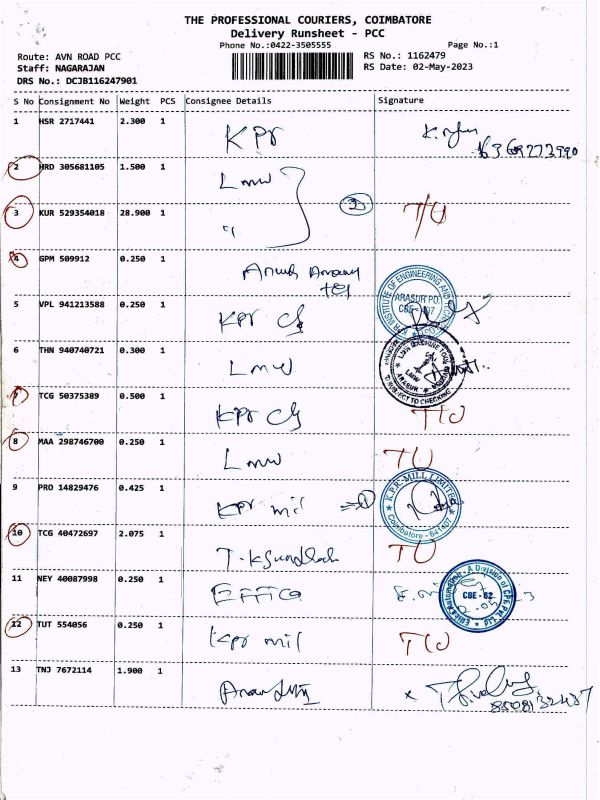 THE PROFESSIONAL COURIERS, COIMBATORE
Delivery Runsheet - PCC
Phone No.:0422-3505555 Page No.:1
Route: AVN ROAD PCC RS No.: 1162479
Staff: NAGARAJAN RS Date: 02-May-2023
DRS No.: DCJB116247901
S No Consignment No Weight PCS Consignee Details Signature
1 HSR 2717441 2.300 1 KPr
2 HRD 305681105 1.500 1 Lmw
3 KUR 529354018 28.900 1 " 2 T/U
4 GPM 509912 0.250 1
5 VPL 941213588 0.250 1 KPr Clg ARASUR PO.
6 THN 940740721 0.300 1 Lmw LMW ARASUR SUBJECT TO CHECKING
7 TCG 50375389 0.500 1 KPr Clg TU
8 MAA 298746700 0.250 1 Lmw TU
9 PRO 14829476 0.425 1 KPr mil 1 K.P.R. MILL LIMITED Coimbatore - 641407
10 TCG 40472697 2.075 1 TU
11 NEY 40087998 0.250 1 Effica CBE - 62
12 TUT 554056 0.250 1 Kpr mil TU
13 TNJ 7672114 1.900 1